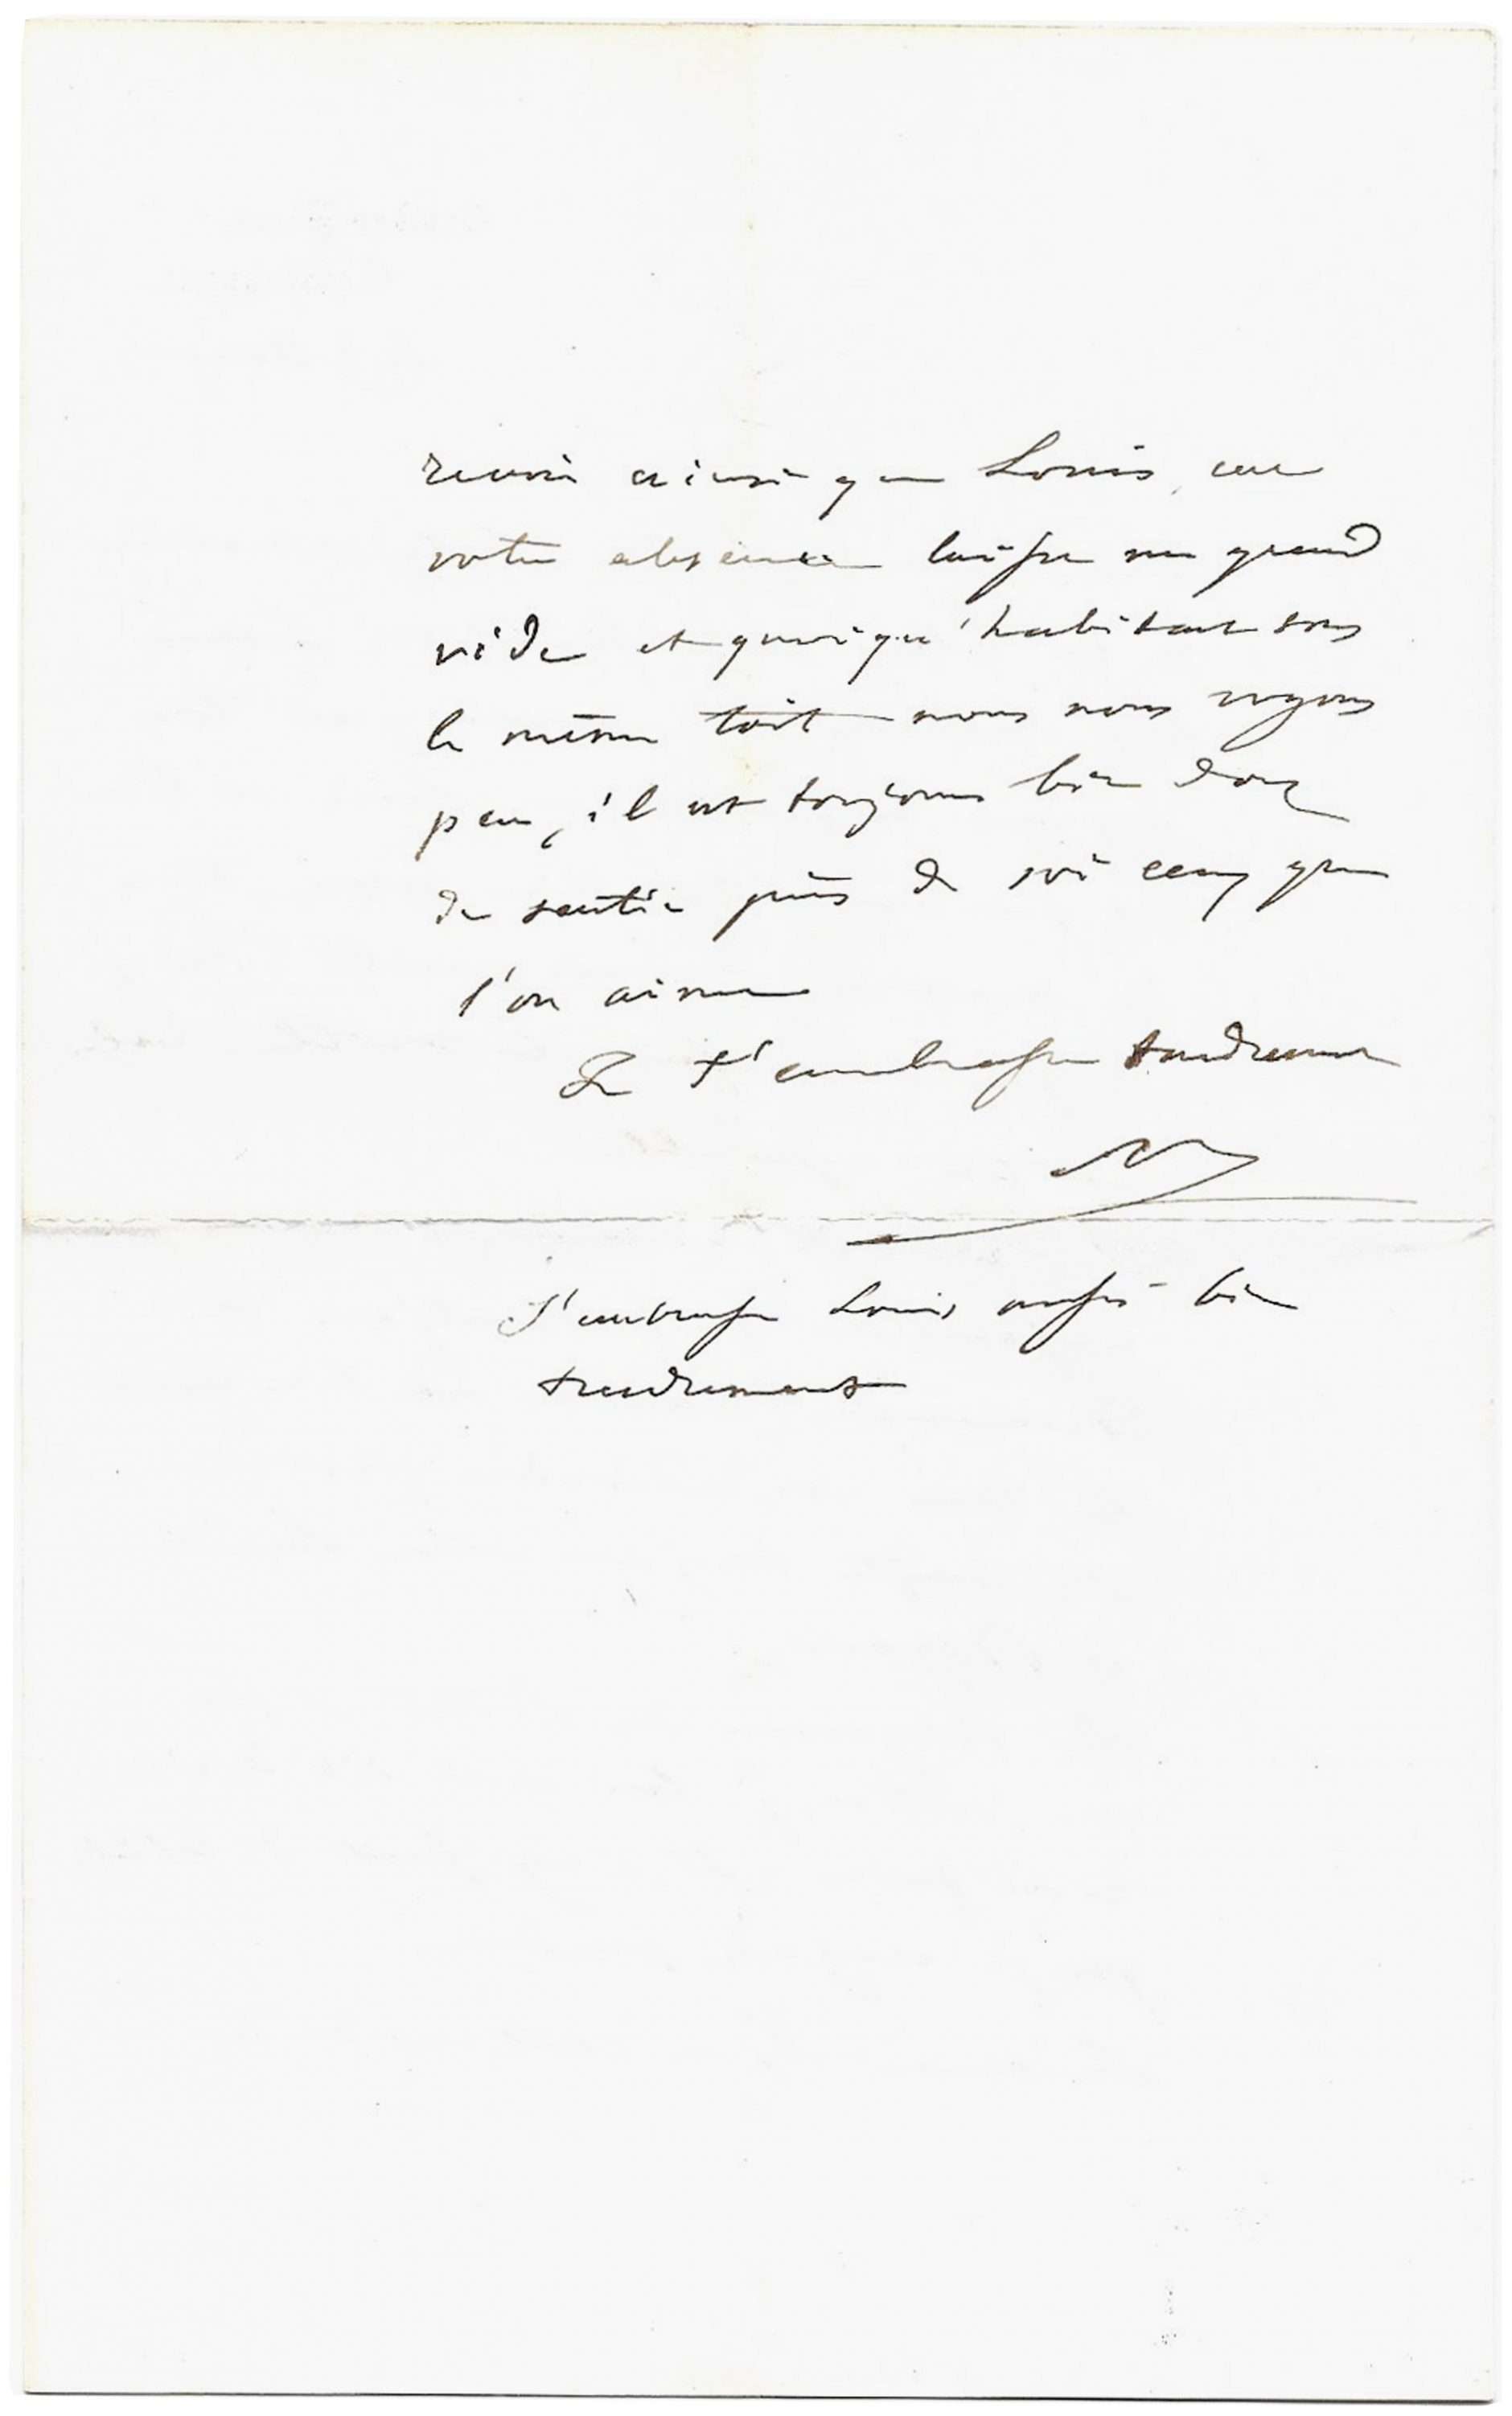 revoir ainsi que Louis, car
votre absence laisse un grand
vide et quoiqu'habitant sous
le même toit nous nous voyons
peu, il est toujours bien doux
de sentir près de soi ceux que
l'on aime
Je t'embrasse tendrement
N
J'embrasse Louis aussi bien
tendrement